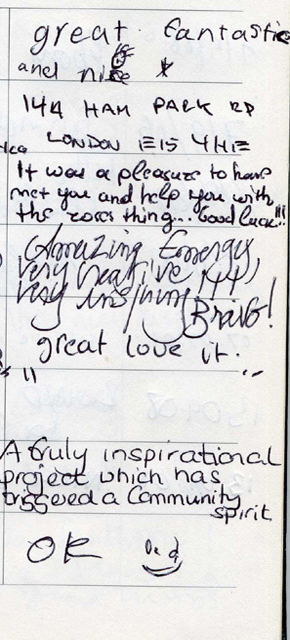 great. fantastic
and nice *
14A HAM PARK RD
LONDON E15 4HE
It was a pleasure to have
met you and help you with
the roses thing... Good luck!!!
Amazing Energy,
very creative, 144,
very inspiring,
Bravo!
great love it.
" "
A truly inspirational
project which has
triggered a Community
spirit
OK